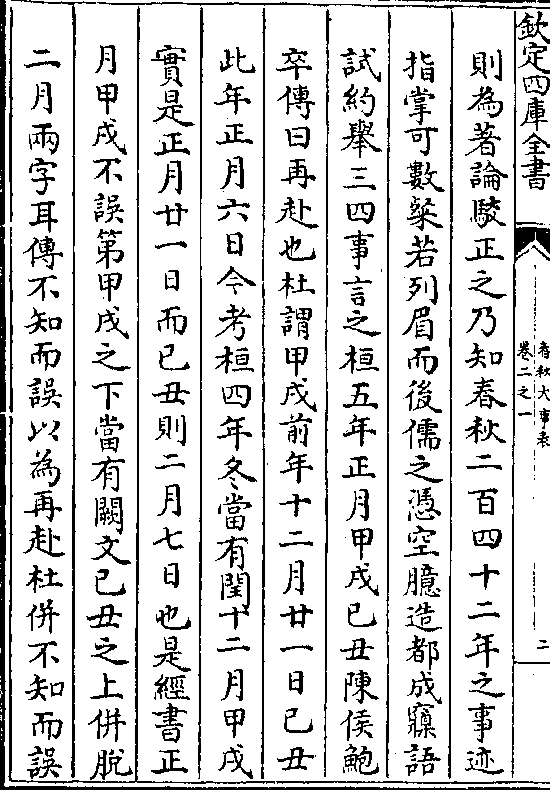 欽定四庫全書
春秋大事表
卷二之一
二
則為著論駮正之乃知春秋二百四十二年之事迹
指掌可數粲若列眉而後儒之憑空臆造都成寱語
試約舉三四事言之桓五年正月甲戌己丑陳侯鮑
卒傳曰再赴也杜謂甲戌前年十二月廿一日己丑
此年正月六日今考桓四年冬當有閏十二月甲戌
實是正月廿一日而己丑則二月七日也是經書正
月甲戌不誤第甲戌之下當有闕文己丑之上併脫
二月兩字耳傳不知而誤以為再赴杜併不知而誤